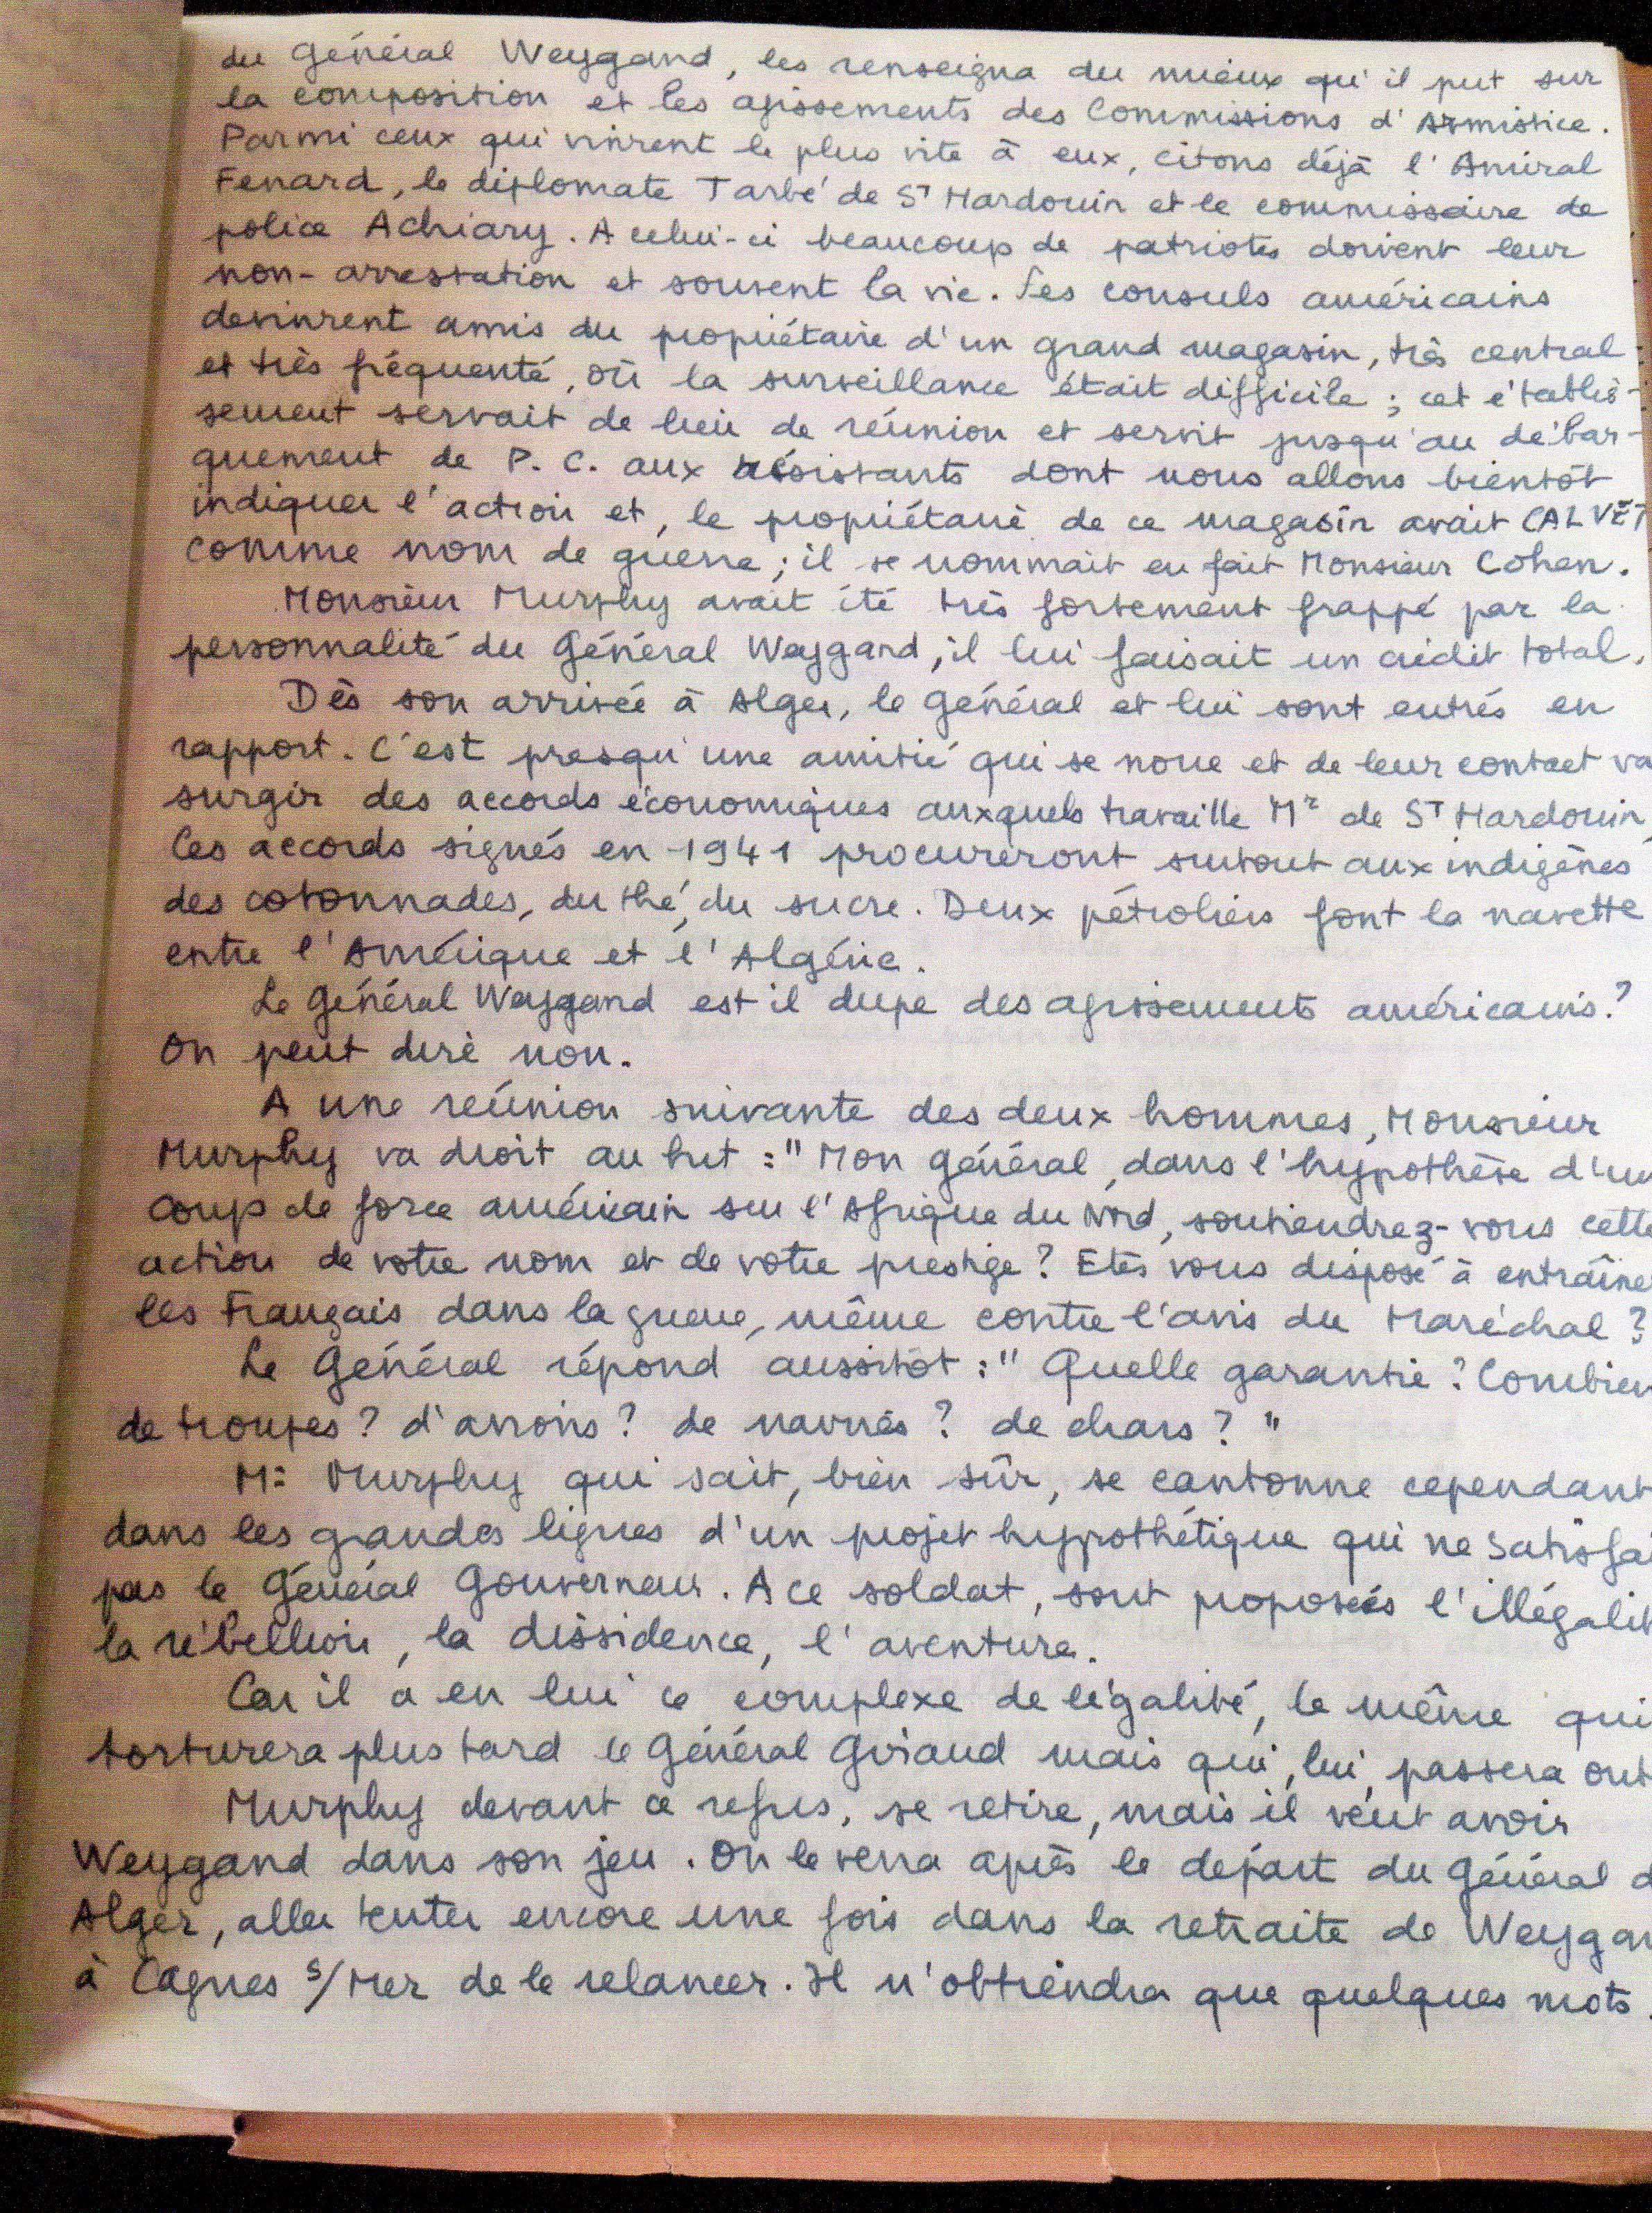 du Général Weygand, les renseigna du mieux qu'il put sur
la composition et les agissements des Commissions d'Armistice.
Parmi ceux qui vinrent le plus vite à eux, citons déjà l'Amiral
Fenard, le diplomate Tarbé de St Hardouin et le commissaire de
police Achiary. A celui-ci beaucoup de patriotes doivent leur
non-arrestation et souvent la vie. Les consuls américains
devinrent amis du propriétaire d'un grand magasin, très central
et très fréquenté, où la surveillance était difficile ; cet établis-
sement servait de lieu de réunion et servit jusqu'au débar-
quement de P.C. aux résistants dont nous allons bientôt
indiquer l'action et, le propriétaire de ce magasin avait CALVET
comme nom de guerre ; il se nommait en fait Monsieur Cohen.
Monsieur Murphy avait été très fortement frappé par la
personnalité du Général Weygand, il lui faisait un crédit total.
Dès son arrivée à Alger, le Général et lui sont entrés en
rapport. C'est presqu'une amitié qui se noue et de leur contact va
surgir des accords économiques auxquels travaille Mr de St Hardouin
Ces accords signés en 1941 procureront surtout aux indigènes
des cotonnades, du thé, du sucre. Deux pétroliers font la navette
entre l'Amérique et l'Algérie.
Le Général Weygand est il dupe des agissements américains ?
On peut dire non.
A une réunion suivante des deux hommes, Monsieur
Murphy va droit au but : "Mon Général, dans l'hypothèse d'un
coup de force américain sur l'Afrique du Nord, soutiendrez-vous cette
action de votre nom et de votre prestige ? Etes vous disposé à entraîne
les Français dans la guerre, même contre l'avis du Maréchal ?
Le Général répond aussitôt : "Quelle garantie ? Combien
de troupes ? d'avions ? de navires ? de chars ? "
Mr Murphy qui sait, bien sûr, se cantonne cependant
dans les grandes lignes d'un projet hypothétique qui ne satisfa
pas le Général Gouverneur. A ce soldat, sont proposés l'illégalit
la rébellion, la dissidence, l'aventure.
Car il a en lui ce complexe de légalité, le même qui
torturera plus tard le Général Giraud mais qui, lui, passera out
Murphy devant ce refus, se retire, mais il veut avoir
Weygand dans son jeu. On le verra après le départ du Général d
Alger, aller tenter encore une fois dans la retraite de Weygan
à Cagnes s/Mer de le relancer. Il n'obtiendra que quelques mots.